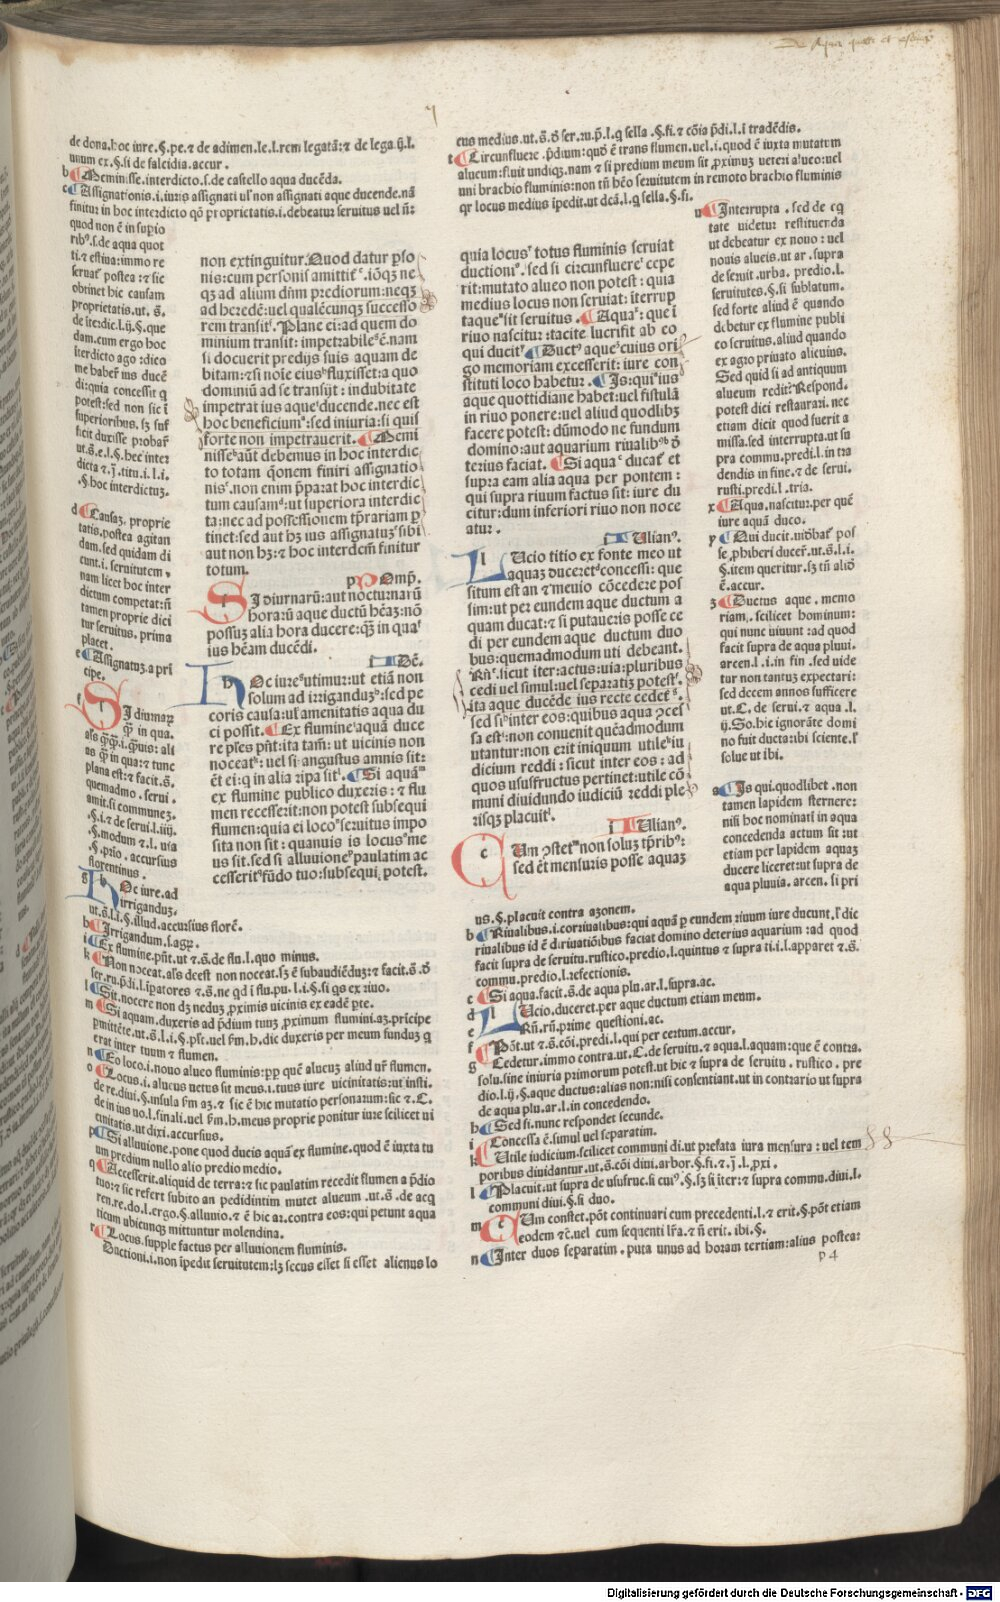 de dona. hoc iure .§. pe. ⁊ de adimen. le. l. rem legatā: ⁊ de lega. ij. l.
unum ex .§. si de falcidia. accur.
b Meminisse. interdicto. s. de castello aqua ducēda.
c Assignationis. i. iuris assignati uł non assignati aque ducende. nā
finitur in hoc interdicto qō proprietatis. i. debeatur seruitus uel ñ:
quod non ē in supio
ribꝰ. s. de aqua quot
ti. ⁊ estiua: immo re
seruat postea: ⁊ sic
obtinet hic causam
proprietatis. ut. s̄.
de iterdic. l. ij. §. que
dam. cum ergo hoc
iterdicto ago: dico
me habeř ius ducē
di: quia concessit q̄
potest: sed non sic ī
superioribus. sꝫ suf
ficit duxisse probař
ut. s̄. e. l. §. hec inter
dicta ⁊ j. titu. i. l. i.
.§. hoc interdictuꝫ.
d Causaꝫ. proprie
tatis. postea agitan
dam. sed quidam di
cunt. i. seruitutem.
nam licet hoc inter
dictum competat: ñ
tamen proprie dici
tur seruitus. prima
placet.
e Assignatuꝫ. a pri
cipe.
SI diurnaꝝ
ꝙ̄ in qua.
plana est: ⁊ facit. s̄.
quemadmo. serui.
amit. si communeꝫ.
.§. i. ⁊ de serui. l. iiij.
.§. modum ⁊ l. uia
.§. pꝛio. accursius
florentinus.
g HOc iure. ad
irriganduꝫ.
ut. s̄. l. i. §. illud. accursius florē.
h Irrigandum. s. agꝝ.
i Ex flumine. pñt. ut ⁊ s̄. de flu. l. quo minus.
k Non noceat. als deest non noceat. sꝫ ē subaudiēduꝫ: ⁊ facit. s̄. ð
ser. ru. p̄di. l. ipatores ⁊ s̄. ne qd ī flu. pu. l. i. §. si qs ex riuo.
l Sit. nocere non dꝫ neduꝫ ꝓximis uicinis ex eadē pte.
m Si aquam. duxeris ad p̄dium tuuꝫ ꝓximum flumini. aꝫ. pricipe
ꝑmittēte. ut. s̄. l. i. §. pſt. uel ẜm. h. dic duxeris per meum funduꝫ q̄
erat inter tuum ⁊ flumen.
n Eo loco. i. nouo alueo fluminis: ꝓꝑ quē alueuꝫ aliud uř flumen.
o Locus. i. alueus uetus sit meus. i. tuus iure uicinitatis: ut insti.
de re. diui. §. insula ẜm aꝫ. ⁊ sic ē hic mutatio personarum: sic ⁊. C.
de in ius uo. l. finali. uel ẜm. h. meus proprie ponitur iure scilicet ui
cinitatis. ut dixi. accursius.
p Si alluuione. pone quod ducis aquā ex flumine. quod ē iuxta tu
um predium nullo alio predio medio.
q Accesserit. aliquid de terra: ⁊ sic paulatim recedit flumen a p̄dio
tuo: ⁊ sic refert subito an pedidintim mutet alueum .ut. s̄. de acq
ren. re. do. l. ergo. §. alluuio. ⁊ ē hic aꝛ. contra eos: qui petunt aqua
ticum ubicunqꝫ mittuntur molendina.
r Locus. supple factus per alluuionem fluminis.
Ductioni. i. non ipedit seruitutem: lꝫ secus esset si esset alienus lo
non extinguitur. Quod datur pſo
nis: cum personis amittit̄. ioꝗꝫ ne
qꝫ ad alium dñm prediorum: neqꝫ
ad heredē: uel qualēcunqꝫ successo
rem transit. Plane ei: ad quem do
minium transit: impetrabile ē. nam
si docuerit predijs suis aquam de
bitam: ⁊ si noīe eius fluxisset: a quo
dominiū ad se transijt: indubitate
impetrat ius aque ducende. nec est
hoc beneficium: sed iniuria: si quis
forte non impetrauerit. Memi
nisse aūt debemus in hoc interdic
to totam q̄onem finiri assignatio
nis. non enim p̄para: at hoc interdic
tum causam: ut superiora interdic
ta: nec ad possessionem tp̄rariam ꝑ
tinet: sed aut hꝫ ius assignatuꝫ sibi
aut non hꝫ: ⁊ hoc interdcm̄ finitur
totum.
POmp̄.
SI diurnarū: aut nocturnarū
horarū aque ductū hēaꝫ: nō
possuꝫ alia hora ducere: q̄ꝫ in qua
ius hēam ducēdi.
IDē.
HOc iure utimur: ut etiā non
solum ad irriganduꝫ: sed pe
coris causa: uł amenitatis aqua du
ci possit. Ex flumine aquā duce
re ples pñt: ita tam̄: ut uicinis non
noceat: uel si angustus amnis sit:
ēt ei: q in alia ripa sit. Si aquā
ex flumine publico duxeris: ⁊ flu
men recesserit: non potest subsequi
flumen: quia ei loco seruitus impo
sita non sit: quanuis is locus me
us sit. sed si alluuione paulatim ac
cesserit fūdo tuo: subsequi potest.
cus medius. ut. s̄. ð ser. ru. p̄. l. q̄ sella .§. fi. ⁊ cōia p̄di. l. i tradēdis.
t Circunfluere. p̄dium: quō ē trans flumen. uel. i. quod ē iuxta mutatum
alueum: fluit undiqꝫ. nam ⁊ si predium meum sit ꝓximuꝫ ueteri alueo: uel
uni brachio fluminis: non tñ hēo seruitutem in remoto brachio fluminis
qr locus medius ipedit. ut dcā. l. q̄ sella. §. fi.
quia locus totus fluminis seruiat
ductioni. sed si circunfluere cepe
rit: mutato alueo non potest: quia
medius locus non seruiat: iterrup
taque sit seruitus. Aqua: que i
riuo nascitur: tacite lucrifit ab eo
qui ducit. Ductꝰ aque: cuius ori
go memoriam excesserit: iure con
stituti loco habetur. Is: qui ius
aque quottidiane habet: uel fistulā
in riuo ponere: uel aliud quodlibꝫ
facere potest: dūmodo ne fundum
domino: aut aquarium riualibꝰ ð
terius faciat. Si aqua ducat̄ et
supra eam alia aqua per pontem:
qui supra riuum factus sit: iure du
citur: dum inferiori riuo non noce
atur.
IUlianꝰ.
LUcio titio ex fonte meo ut
aquaꝫ duceret concessi: que
situm est an ⁊ meuio cōcedere pos
sim: ut per eundem aque ductum a
quam ducat: ⁊ si putaueris posse ce
di per eundem aque ductum duo
bus: quemadmodum uti debeant.
Rñ. sicut iter: actus: uia: pluribus
cedi uel simul: uel separatiꝫ potest.
ita aque ducēde ius recte cedet̄.
sed si inter eos: quibus aqua ꝯces
sa est: non conuenit quēadmodum
utantur: non erit iniquum utile iu
dicium reddi: sicut inter eos: ad
quos ususfructus pertinet: utile cō
muni diuidundo iudiciū reddi ple
risqꝫ placuit.
IUlianꝰ.
CUm ꝯstet non soluꝫ tp̄ribꝰ:
sed ēt mensuris posse aquaꝫ
u Interrupta. sed de eq̄
tate uidetur restituenda
ut debeatur ex nouo: uel
nouis alueis. ut ar. supra
de seruit. urba. predio. l.
seruitutes. §. si sublatum.
sed forte aliud ē quando
debetur ex flumine publi
co seruitus. aliud quando
ex agro priuato alicuius.
Sed quid si ad antiquum
alueum redit? Respond.
potest dici restaurari. nec
etiam dicit quod fuerit a
missa. sed interrupta. ut su
pra commu. predi. l. in tra
dendis in fine. ⁊ de serui.
rusti. predi. l. tria.
x Aqua. nascitur. per quē
iure aquā duco.
y Qui ducit. uidebat̄ pos
se ꝓhiberi duceř. ut. s̄. l. i.
§. item queritur. sꝫ tñ aliō
ē. accur.
z Ductus aque. memo
riam. scilicet hominum:
qui nunc uiuunt: ad quod
facit supra de aqua pluui.
arcen. l. i. in fin. sed uide
tur non tantuꝫ expectari:
sed decem annos sufficere
ut. C. de serui. ⁊ aqua. l.
ij. So. hic ignorāte domi
no fuit ducta: ibi sciente. ł
solue ut ibi.
a Is qui. quodlibet. non
tamen lapidem sternere:
nisi hoc nominatī in aqua
concedenda actum sit: ut
etiam per lapidem aquaꝫ
ducere liceret: ut supra de
aqua pluuia. arcen. si pri
us. §. placuit contra aꝫonem.
b Riualibus. i. corriualibus: qui aquā ꝑ eundem riuum iure ducunt. ł dic
riualibus id ē diriuatiōibus faciat domino deterius aquarium: ad quod
facit supra de seruitu. rustico. predio. l. quintus ⁊ supra ti. i. l. apparet ⁊. s̄.
commu. predio. l. refectionis.
c Si aqua. facit. s̄. de aqua plu. ar. l. supra. ac.
d LUcio. duceret. per aque ductum etiam meum.
e Rñ. rñ. prime questioni. ac.
f Pōt. ut ⁊ s̄. cōi. predi. l. qui per certum. accur.
g Cedetur. immo contra. ut. C. de seruitu. ⁊ aqua. l. aquam: que ē contra.
solu. sine iniuria primorum potest. ut hic ⁊ supra de seruitu. rustico. pre
dio. l. ij. §. aque ductus: alias non: nisi consentiant. ut in contrario ut supra
de aqua plu. ar. l. in concedendo.
h Sed si. nunc respondet secunde.
i Concessa ē. simul uel separatim.
k Utile iudicium. scilicet communi di. ut prefata iura mensura: uel tem
poribus diuidantur. ut. s̄. cōi diui. arbor. §. fi. ⁊. j. l. ꝓxi.
l Placuit. ut supra de usufruc. si cui. §. sꝫ si iter: ⁊ supra commu. diui. l.
communi diui. §. si duo.
m CUm constet. pōt continuari cum precedenti. l. ⁊ erit. §. pōt etiam
eodem ⁊c̄. uel cum sequenti lr̄a. ⁊ ñ erit. ibi. §.
n Inter duos separatim. puta unus ad horam tertiam: alius postea:
p 4
Digitalisierung gefördert durch die Deutsche Forschungsgemeinschaft - DFG